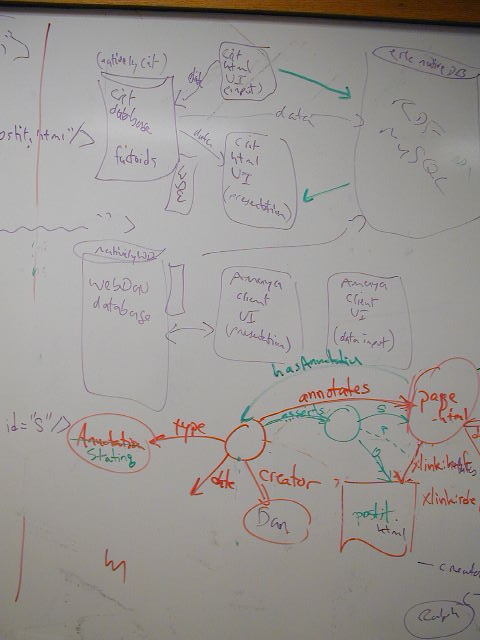 (natively Cit)
Cit
database
factoids
Cit
html
UI
(input)
data
data
data
Cit
html
UI
(presentation)
RDF
MySQL
ostit.html"/>
natively WD
WebDav
database
Amaya
client
UI
(presentation)
Amaya
client
UI
(data input)
hasAnnotation
annotates
asserts
S
P
O
page
.html
id="S"/>
type
Annotation
Stating
date
creator
Dan
postit.
html
xlink:href
xlink:role
creator
Ralph